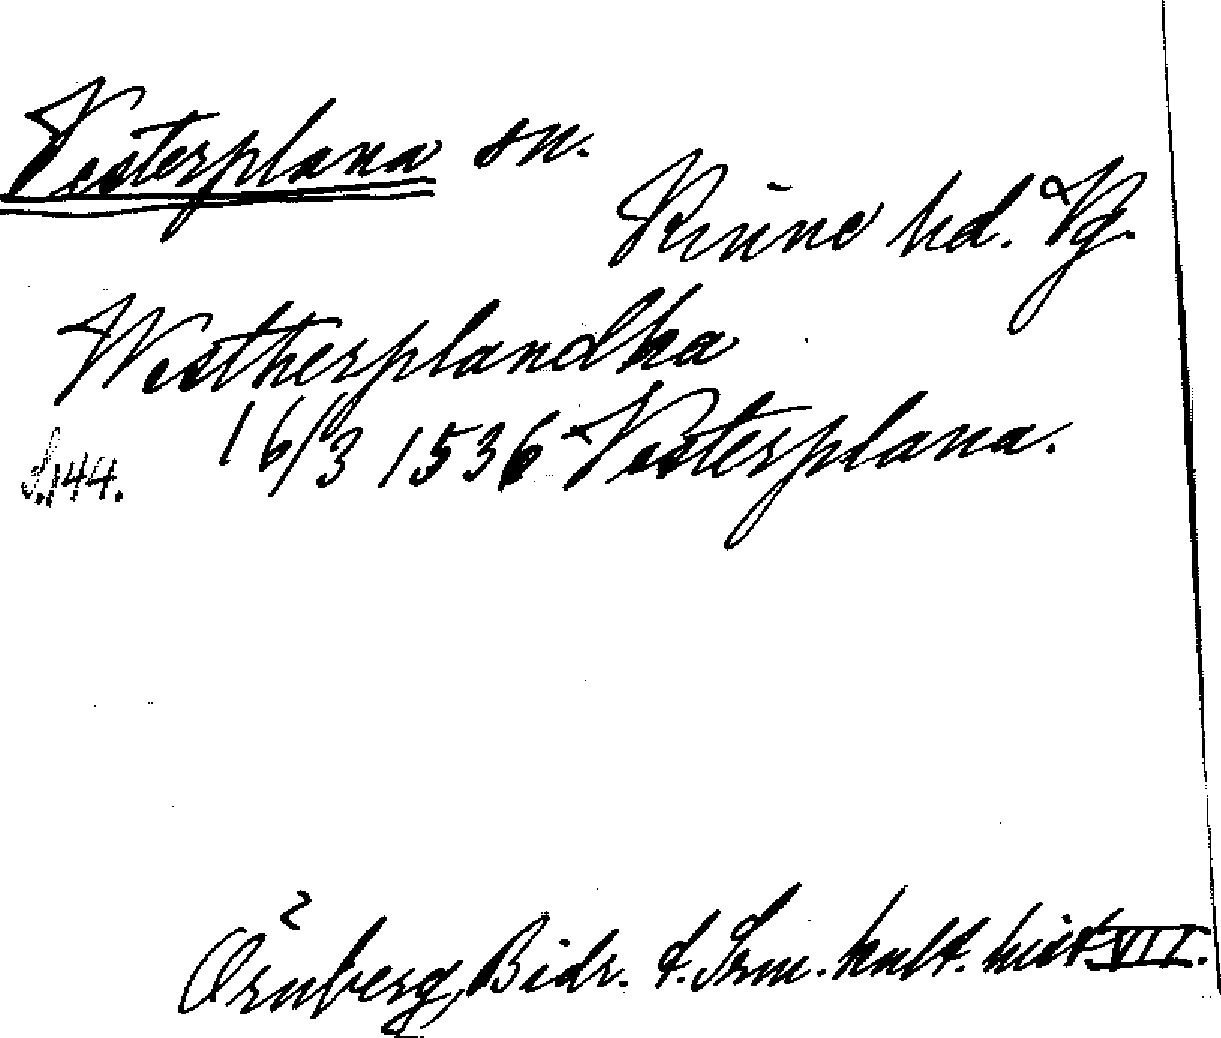 Vesterplana sn.
Kinne hd. Vg.
Westherplandha
16/3 1536 Vesterplana.
S.144.
Örnberg, Bidr. t. Srm. kult. hist. VII.